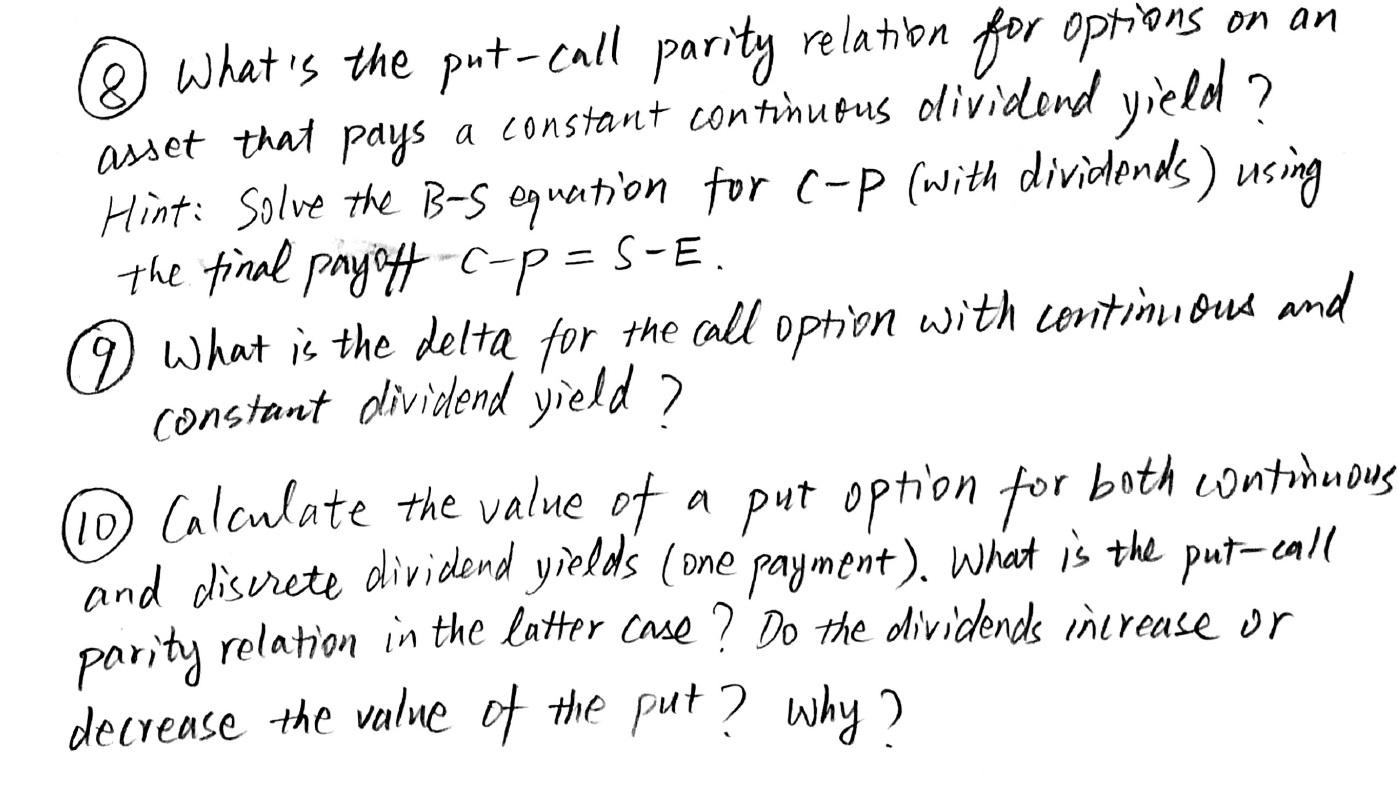 ⑧ What's the put-call parity relation for options on an
asset that pays a constant continuous dividend yield?
Hint: Solve the B-S equation for C-P (with dividends) using
the final payoff C-P = S-E.
⑨ What is the delta for the call option with continuous and
constant dividend yield?
⑩ Calculate the value of a put option for both continuous
and discrete dividend yields (one payment). What is the put-call
parity relation in the latter case? Do the dividends increase or
decrease the value of the put? Why?